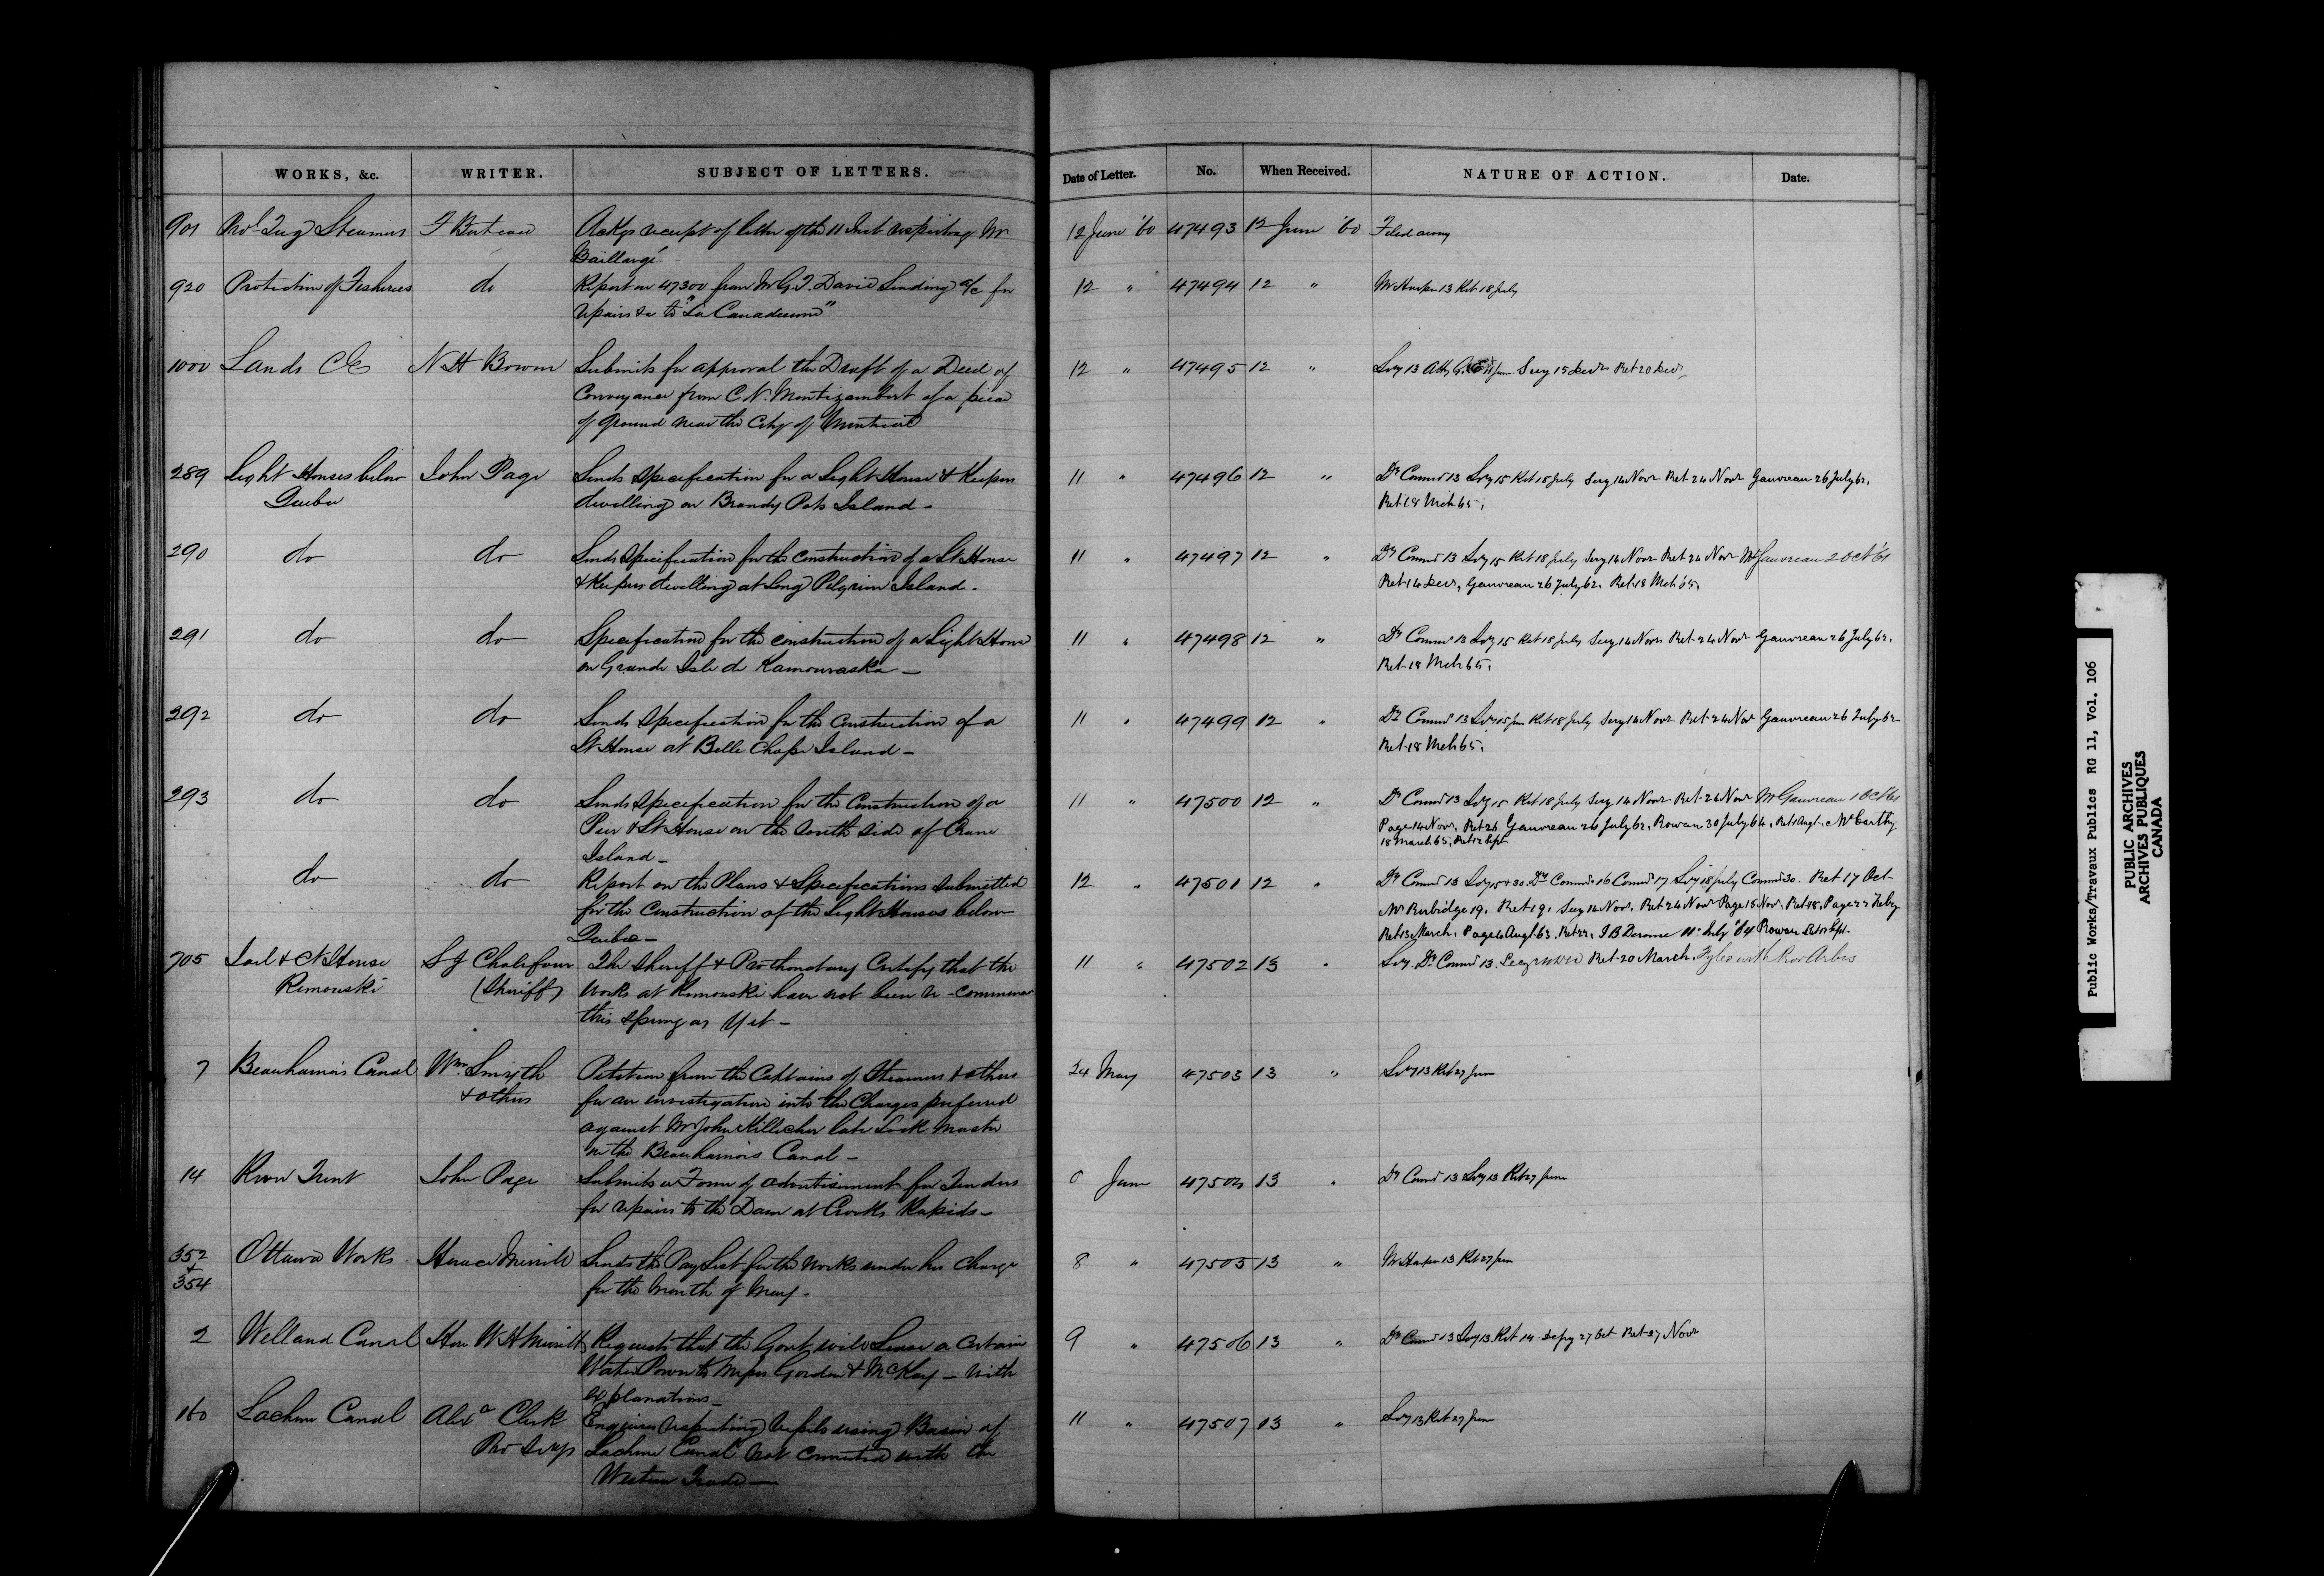 WORKS, &c. WRITER. SUBJECT OF LETTERS. Date of Letter. No. When Received. NATURE OF ACTION. Date.
901 Tug Steamers F Buteau Ackgs receipt of letter of the 11 Inst respecting Mr 12 June '60 47493 12 June '60 Filed away
Baillargé
920 Protection of Fisheries do Report on 47300 from Mr G. T. David Sending a/c for 12 " 47494 12 " Mr Harper 13 Ret 18 July
repairs &c to "La Canadienne"
1000 Lands CE N H Bowen Submits for approval the Draft of a Deed of 12 " 47495 12 " 13 15 Decr Ret 20 Decr
Conveyance from C. N. Montizambert of a piece
of ground near the City of Montreal
289 Light Houses below John Page Sends Specification for a Light House & Keepers 11 " 47496 12 " Dy Commr 13 Svy 15 Ret 18 July Secy 14 Novr Ret 24 Novr Gauvreau 26 July 62,
Quebec dwelling on Brandy Pots Island - Ret 18 Mch 65,
290 do do Sends Specification for the Construction of a Lt House 11 " 47497 12 " Dy Commr 13 Svy 15 Ret 18 July Secy 14 Novr Ret 24 Novr Mr Gauvreau 2 Oct '61
& Keepers dwelling at Long Pilgrim Island - Ret 14 Decr, Gauvreau 26 July 62, Ret 18 Mch 65,
291 do do Specification for the construction of a Light House 11 " 47498 12 " Dy Commr 13 Svy 15 Ret 18 July Secy 14 Novr Ret 24 Novr Gauvreau 26 July 62,
on Grande Isle de Kamouraska - Ret 18 Mch 65,
292 do do Sends Specification for the Construction of a 11 " 47499 12 " Dy Commr 13 Svy 15 Jun Ret 18 July Secy 14 Novr Ret 24 Nov Gauvreau 26 July 62
Lt House at Belle Chasse Island - Ret 18 Mch 65,
293 do do Sends Specification for the Construction of a 11 " 47500 12 " Dy Commr 13 Svy 15 Ret 18 July Secy 14 Novr Ret 24 Novr Mr Gauvreau 1 Oct 61
Pier & Lt House on the South Side of Crane Page 14 Novr, Ret 26 Gauvreau 26 July 62, Rowan 30 July 64, Ret 1 Augt, McCarthy
Island - 18 March 65, Ret 12 Sept
do do Report on the Plans & Specifications Submitted 12 " 47501 12 " Dy Commr 13 Svy 15 & 30 Dy Commr 16 Commr 17 Svy 18 July Commr 30. Ret 17 Oct
for the Construction of the Light Houses below Mr Rubidge 19, Ret 19, Secy 14 Nov, Ret 24 Novr Page 18 Nov, Ret 18, Page 27 Feby
Quebec - Ret 13 March, Page 6 Augt 63. Ret 22, J B Derome 11 July '64 Rowan
705 Jail & Ct House S J Chalifour The Sheriff & Prothonotary Certify that the 11 " 47502 13 " Svy. Dy Commr 13. Ret 20 March.
Rimouski (Sheriff) Works at Rimouski have not been re-commenced
this Spring as yet -
7 Beauharnois Canal Wm Smyth Petition from the Captains of Steamers & others 24 May 47503 13 " Svy 13 Ret 27 June
& others for an investigation into the Charges preferred
against Mr John late Lock Master
on the Beauharnois Canal -
14 River Trent John Page Submits a Form of advertisement for Tenders June 47504 13 " Dy Commr 13 Svy 13 Ret 27 June
for repairs to the Dam at Crooks Rapids -
352 Ottawa Works Horace Merrill Sends the Pay List for the Works under his Charge 8 " 47505 13 " Mr Harper 13 Ret 27 Jun
& 354 for the Month of May -
2 Welland Canal Hon W H Merritt Requests that the Govt will Lease a Certain 9 " 47506 13 " Dy Commr 13 Svy 13. Ret 14 27 Oct Ret 27 Novr
Water Power to Messrs Gordon & McKay - with
explanations -
160 Lachine Canal Alexr Clerk Enquires respecting Vessels using Basin of 11 " 47507 13 " Svy 13 Ret 27 June
Lachine Canal not connected with the
Western Trade -
Public Works/Travaux Publics RG 11, Vol. 106
PUBLIC ARCHIVES
ARCHIVES PUBLIQUES
CANADA